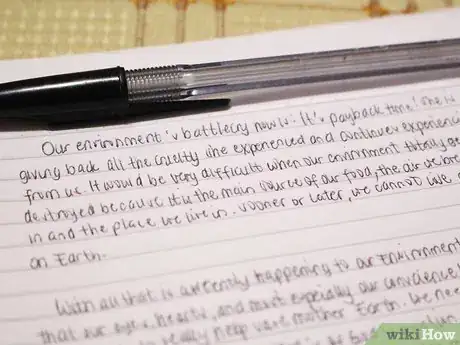 Our environment's battlecry now is: "It's payback time!" She is
giving back all the cruelty she experienced and continues experiencing
from us. It would be very difficult when our environment totally gets
destroyed because it is the main source of our food, the air we breathe
in and the place we live in. Sooner or later, we cannot live
on Earth.
With all that is currently happening to our Environment
that our eyes, hearts, and most especially our conscience
really help save mother Earth. We need
wikiHow